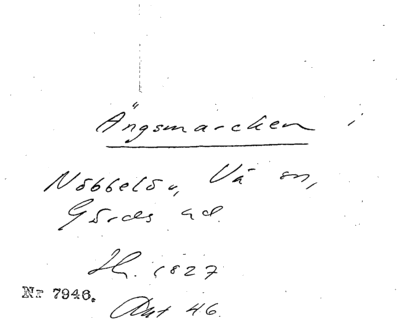 Ängsmarcken i
Nöbbelöv, Vä sn,
Gärds hd.
Sk. 1827
Nr 7946.
Akt 46.